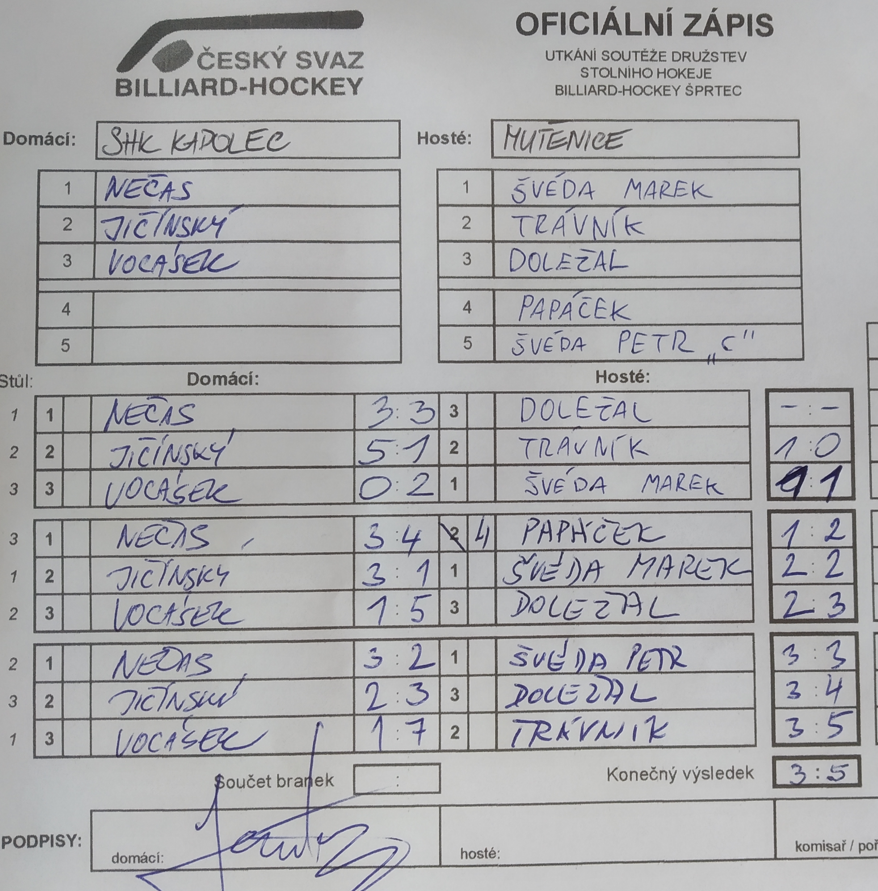 ČESKÝ SVAZ
BILLIARD-HOCKEY
OFICIÁLNÍ ZÁPIS
UTKÁNÍ SOUTĚŽE DRUŽSTEV
STOLNÍHO HOKEJE
BILLIARD-HOCKEY ŠPRTEC
Domácí: SHK KADOLEC Hosté: MUTĚNICE
1 NEČAS 1 ŠVÉDA MAREK
2 JIČÍNSKÝ 2 TRÁVNÍK
3 VOCÁSEK 3 DOLEŽAL
4 4 PAPÁČEK
5 5 ŠVÉDA PETR „C"
Stůl: Domácí: Hosté:
1 1 NEČAS 3:3 3 DOLEŽAL -:-
2 2 JIČÍNSKÝ 5:1 2 TRÁVNÍK 1:0
3 3 VOCÁSEK 0:2 1 ŠVÉDA MAREK 1:1
3 1 NEČAS 3:4 2 4 PAPÁČEK 1:2
1 2 JIČÍNSKÝ 3:1 1 ŠVÉDA MAREK 2:2
2 3 VOCÁSEK 1:5 3 DOLEŽAL 2:3
2 1 NEČAS 3:2 1 ŠVÉDA PETR 3:3
3 2 JIČÍNSKÝ 2:3 3 DOLEŽAL 3:4
1 3 VOCÁSEK 1:7 2 TRÁVNÍK 3:5
Součet branek : Konečný výsledek 3:5
PODPISY: domácí: hosté: komisař / poř